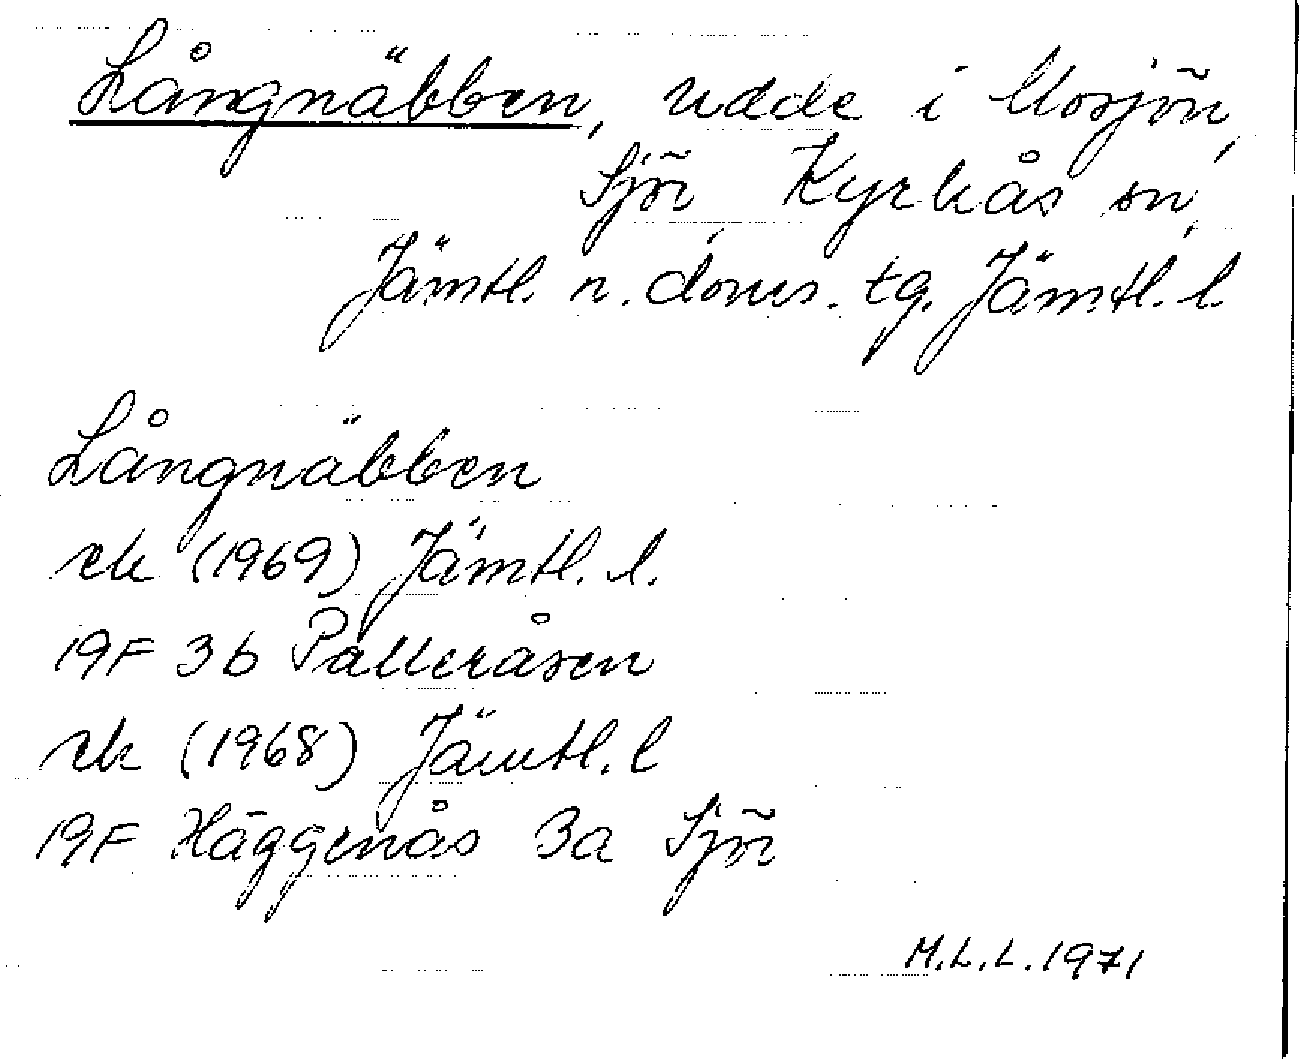 Långnäbben, udde i Mosjön,
Sjör, Kyrkås sn,
Jämtl. n. doms. tg. Jämtl. l
Långnäbben
rek (1969) Jämtl. l.
19F 3b Palleråsen
rek (1968) Jämtl. l
19F Häggenås 3a Sjör
M.L.L. 1971